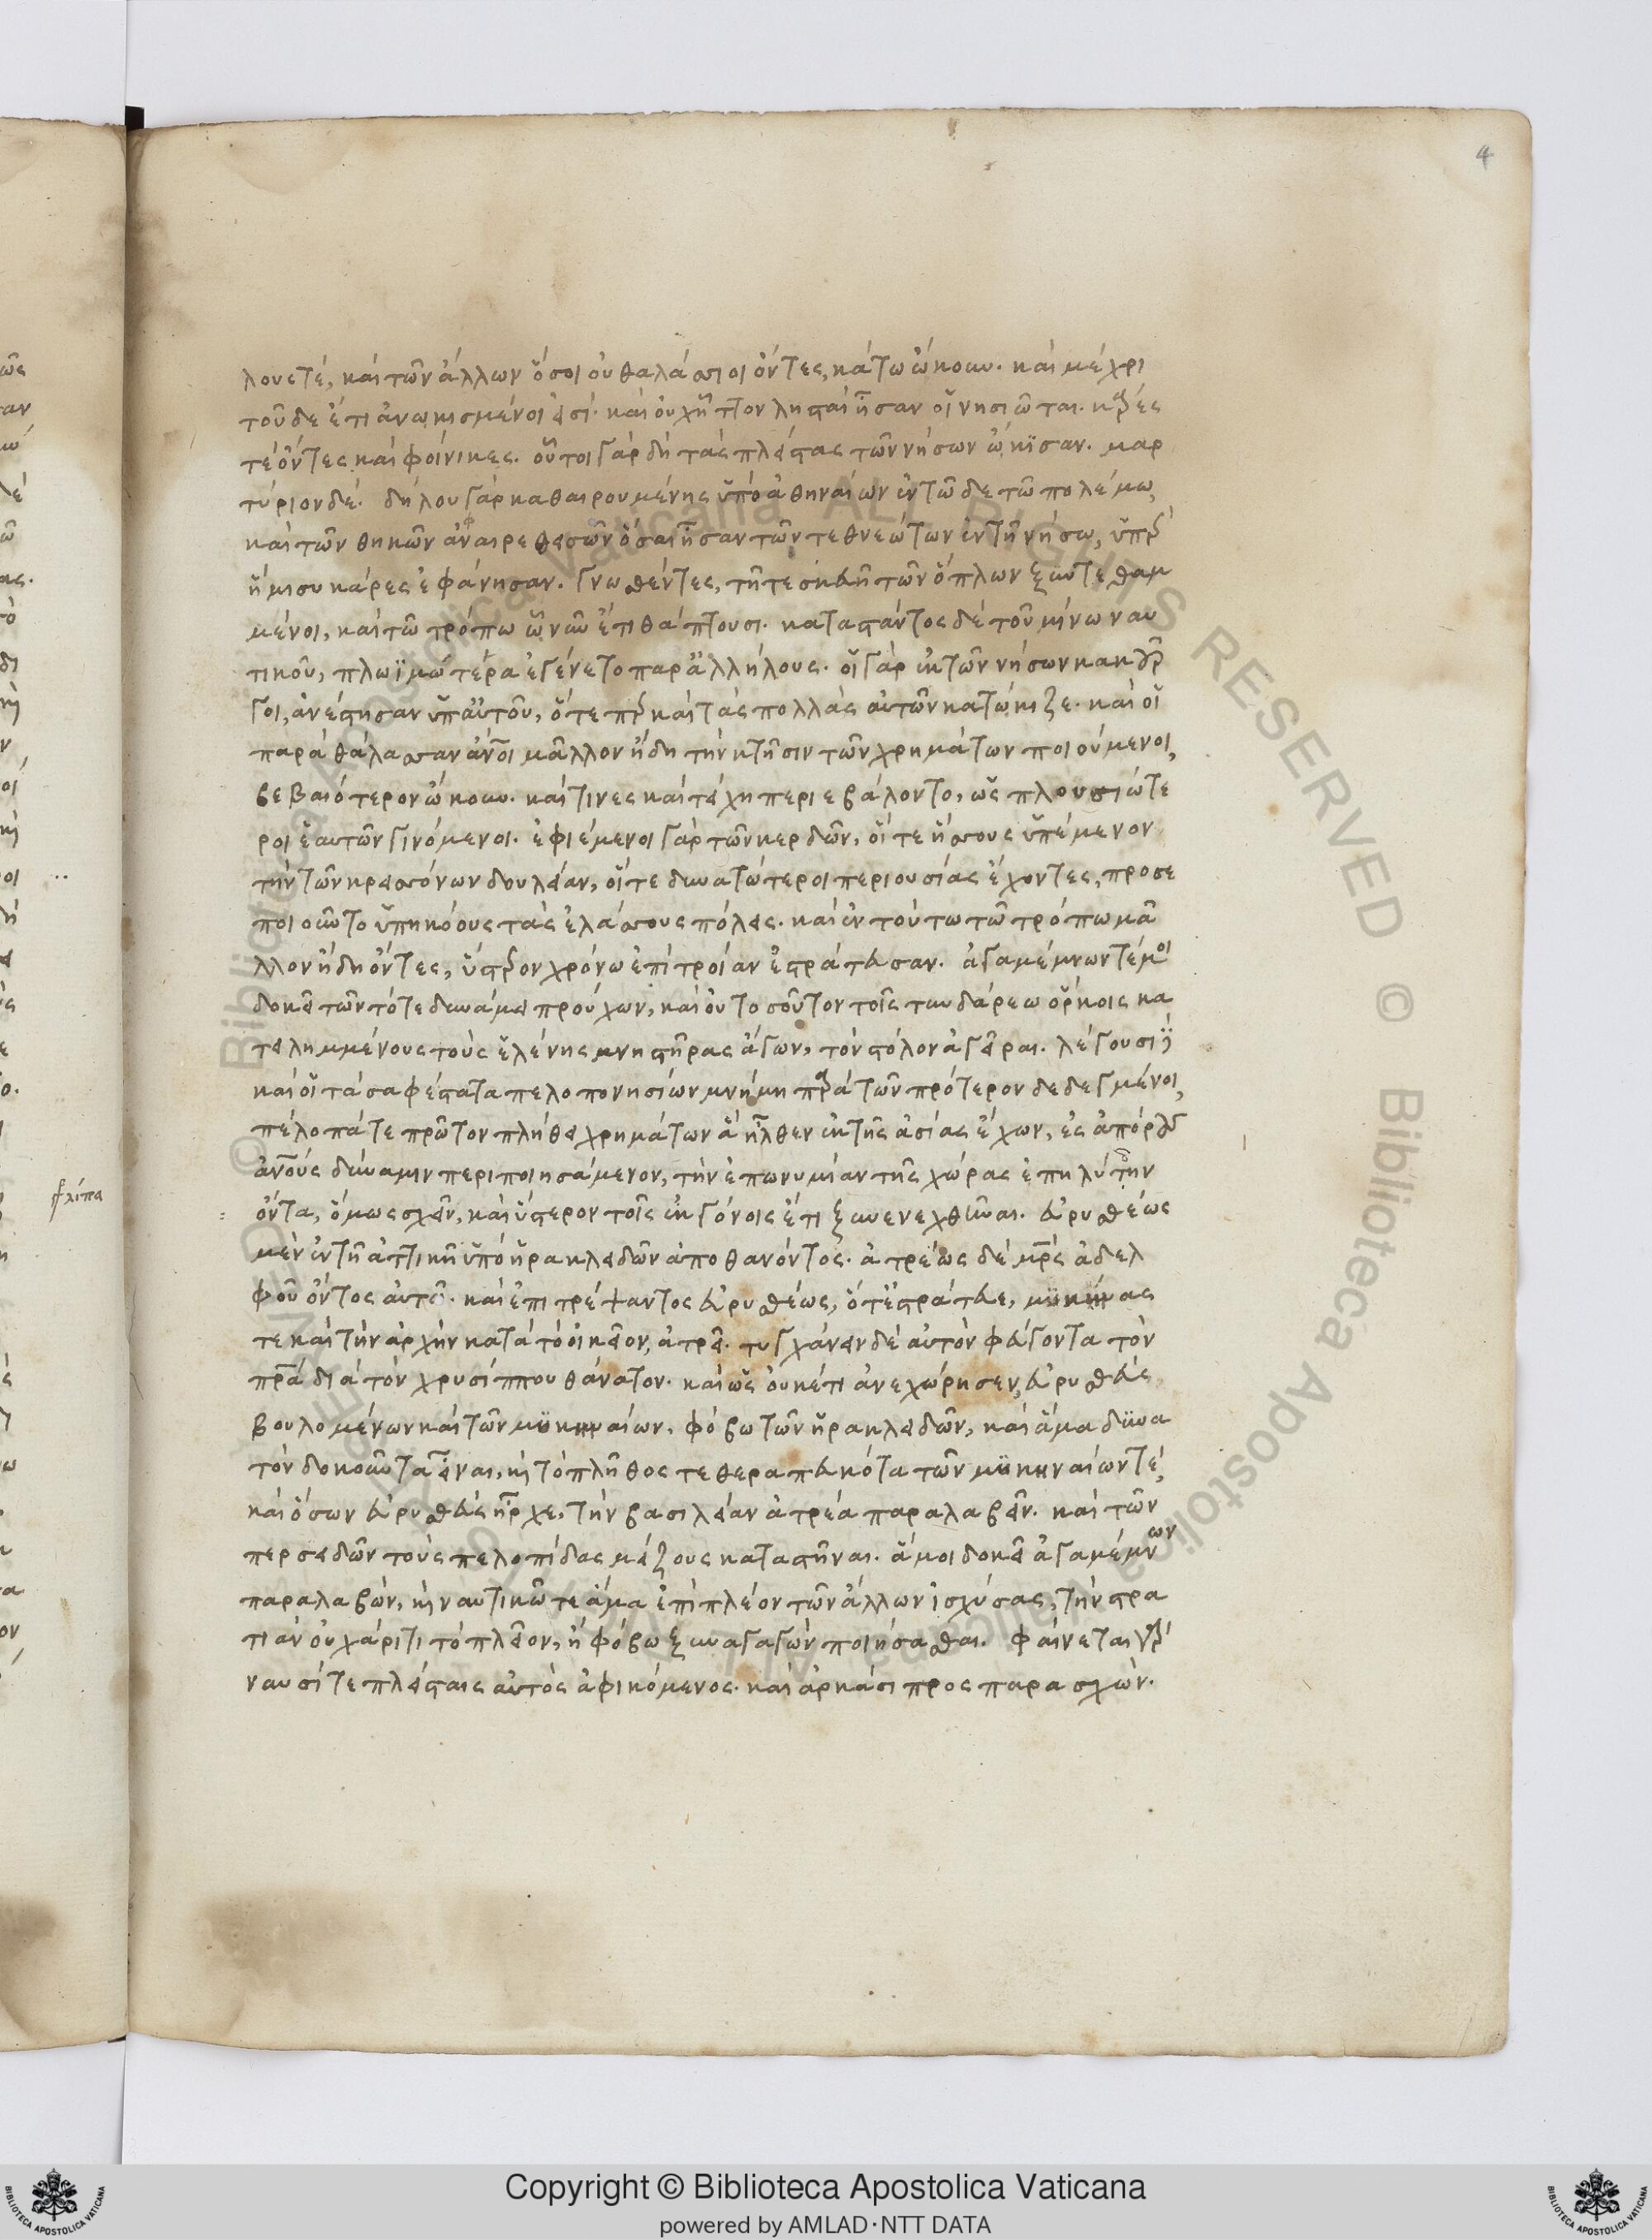 4
λους τὲ, καὶ τῶν ἄλλων ὅσοι οὐ θαλάσσιοι ὄντες, κάτω ᾤκουν. καὶ μέχρι
τοῦδε ἔτι ἀνῳκισμένοι εἰσί. καὶ οὐχ ἧττον λῃσταὶ ἦσαν οἱ νησιῶται. κᾶρές
τὲ ὄντες καὶ φοίνικες. οὗτοι γὰρ δὴ τὰς πλείστας τῶν νήσων ᾤκισαν. μαρ
τύριον δέ. δήλου γὰρ καθαιρουμένης ὑπὸ ἀθηναίων ἐν τῶδε τῶ πολέμω,
καὶ τῶν θηκῶν ἀναιρεθεισῶν ὅσαι ἦσαν τῶν τεθνεώτων ἐν τῆ νήσω, ὑπὲρ
ἥμισυ κάρες ἐφάνησαν. γνωσθέντες, τῆ τε σκευῆ τῶν ὅπλων ξυντεθαμ
μένοι, καὶ τῶ τρόπω ὧ νῦν ἔτι θάπτουσι. καταστάντος δὲ τοῦ μίνω ναυ
τικοῦ, πλωϊμώτερα ἐγένετο παρ' ἀλλήλους. οἱ γὰρ ἐκ τῶν νήσων κακοῦρ
γοι, ἀνέστησαν ὑπ' αὐτοῦ, ὅτε περ καὶ τὰς πολλὰς αὐτῶν κατῴκιζε. καὶ οἱ
παρὰ θάλασσαν ἄνοι μᾶλλον ἤδη τὴν κτῆσιν τῶν χρημάτων ποιούμενοι,
βεβαιότερον ᾤκουν. καί τινες καὶ τείχη περιεβάλοντο, ὡς πλουσιώτε
ροι ἑαυτῶν γινόμενοι. ἐφιέμενοι γὰρ τῶν κερδῶν, οἵ τε ἥσσους ὑπέμενον
τὴν τῶν κρεισσόνων δουλείαν, οἵ τε δυνατώτεροι περιουσίας ἔχοντες, προσε
ποιοῦντο ὑπηκόους τὰς ἐλάσσους πόλεις. καὶ ἐν τούτω τῶ τρόπω μᾶ
λλον ἤδη ὄντες, ὕστερον χρόνω ἐπὶ τροίαν ἐστράτευσαν. ἀγαμέμνων τέ μοι
δοκεῖ τῶν τότε δυνάμει προύχων, καὶ οὐ τοσοῦτον τοῖς τυνδάρεω ὅρκοις κα
τειλημμένους τοὺς ἑλένης μνηστῆρας ἄγων, τὸν στόλον ἀγεῖραι. λέγουσι δὲ
καὶ οἱ τὰ σαφέστατα πελοποννησίων μνήμη παρὰ τῶν πρότερον δεδεγμένοι,
πέλοπά τε πρῶτον πλήθει χρημάτων ἃ ἦλθεν ἐκ τῆς ἀσίας ἔχων, ἐς ἀπόρους
ἀνους δύναμιν περιποιησάμενον, τὴν ἐπωνυμίαν τῆς χώρας ἐπηλύτην
ὄντα, ὅμως σχεῖν, καὶ ὕστερον τοῖς ἐκγόνοις ἔτι ξυνενεχθῆναι. εὐρυσθέως
μὲν ἐν τῆ ἀττικῆ ὑπὸ ἡρακλειδῶν ἀποθανόντος. ἀτρέως δὲ μρς ἀδελ
φοῦ ὄντος αὐτῶ. καὶ ἐπιτρέψαντος εὐρυσθέως, ὅτ' ἐστράτευε, μυκήνας
τε καὶ τὴν ἀρχὴν κατὰ τὸ οἰκεῖον, ἀτρεῖ. τυγχάνειν δὲ αὐτὸν φεύγοντα τὸν
πρα διὰ τὸν χρυσίππου θάνατον. καὶ ὡς οὐκέτι ἀνεχώρησεν, εὐρυσθεὺς,
βουλομένων καὶ τῶν μυκηναίων, φόβω τῶν ἡρακλειδῶν, καὶ ἅμα δυνα
τὸν δοκοῦντα εἶναι, κὶ τὸ πλῆθος τεθεραπευκότα τῶν μυκηναίων τέ,
καὶ ὅσων εὐρυσθεὺς ἦρχε, τὴν βασιλείαν ἀτρέα παραλαβεῖν. καὶ τῶν
περσειδῶν τοὺς πελοπίδας μείζους καταστῆναι. ἅ μοι δοκεῖ ἀγαμέμνων
παραλαβὼν, κὶ ναυτικῶ τε ἅμα ἐπιπλέον τῶν ἄλλων ἰσχύσας, τὴν στρα
τιὰν οὐ χάριτι τὸ πλεῖον, ἢ φόβω ξυναγαγὼν ποιήσασθαι. φαίνεται γὰρ
ναυσί τε πλείσταις αὐτὸς ἀφικόμενος. καὶ ἀρκάσι προσπαρασχών.
Copyright © Biblioteca Apostolica Vaticana
powered by AMLAD·NTT DATA